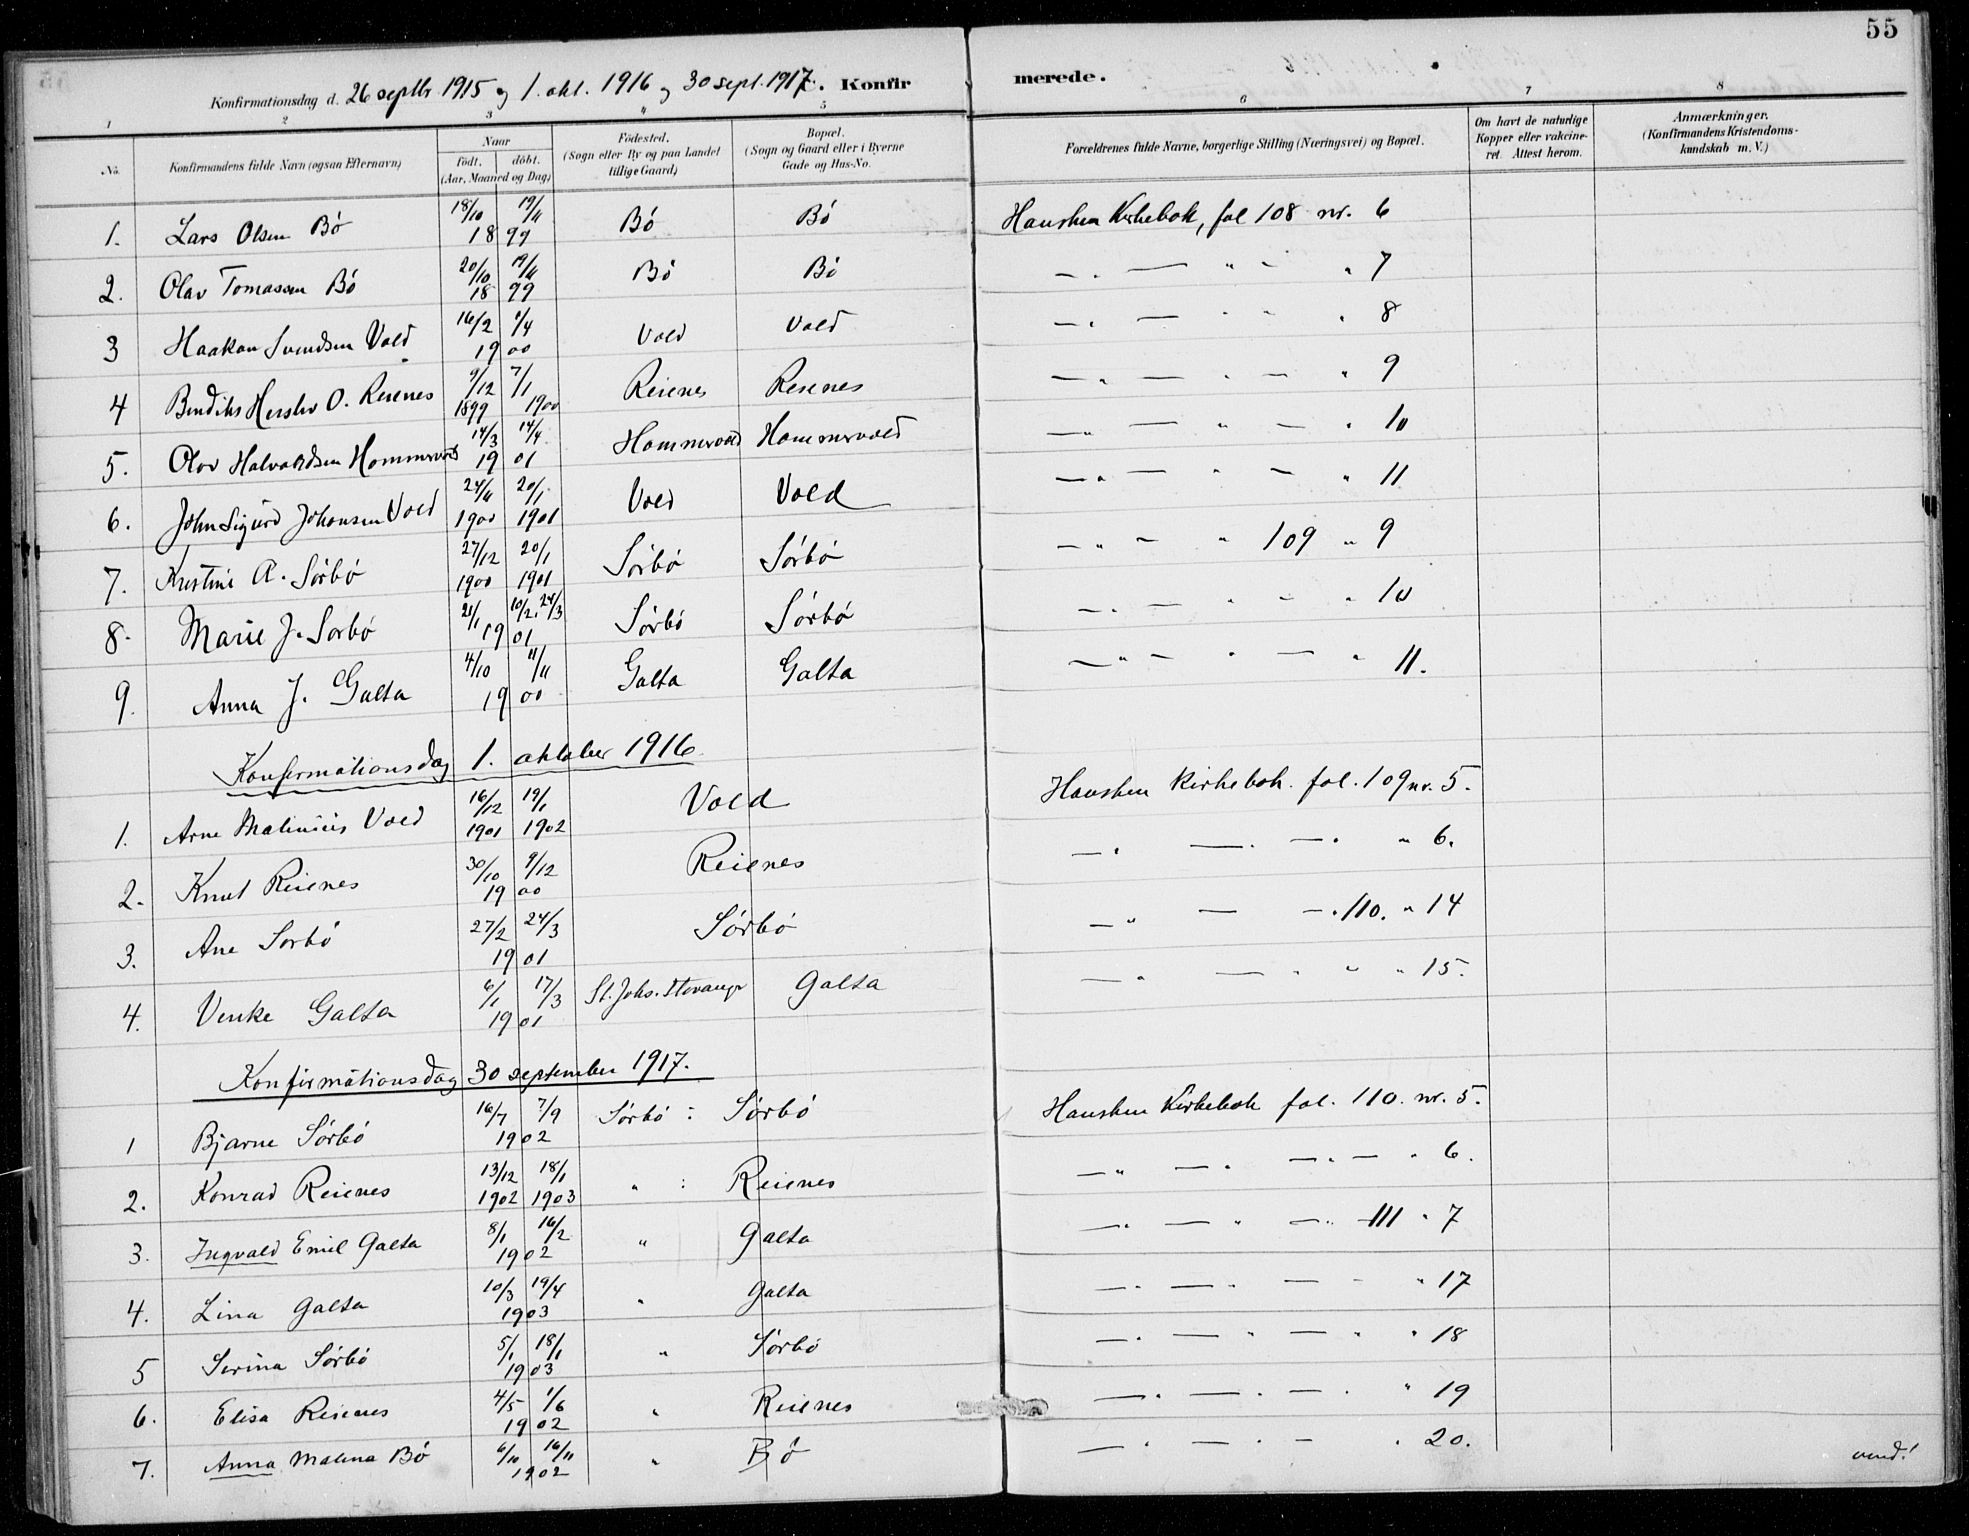 55
Konfirmationsdag d. 26 septbr 1915 og 1. okt. 1916 og 30 sept. 1917. Konfirmerede.
1 2 3 4 5 6 7 8
No. Konfirmandens fulde Navn (ogsaa Efternavn) Naar födt. döbt. (Aar, Maaned og Dag) Födested. (Sogn eller By og paa Landet tillige Gaard) Bopæl. (Sogn og Gaard eller i Byerne Gade og Hus-No. Forældrenes fulde Navne, borgerlige Stilling (Næringsvei) og Bopæl. Om havt de naturlige Kopper eller vakcineret. Attest herom. Anmærkninger. (Konfirmandens Kristendomskundskab m. V.)
1. Lars Olsen Bö 18/10 19/11 1899 Bö Bö Hausken Kirkebok, fol 108 nr. 6
2. Olav Tomassen Bö 20/10 19/11 1899 Bö Bö — " — " — " 7
3 Haakon Svendsen Vold 16/2 1/4 1900 Vold Vold — " — " " " 8
4 Bendiks Herslev O. Reienes 9/12 1899 7/1 1900 Reienes Reienes — " — " — " 9
5. Olav Halvaldsen Hommervold 14/3 14/4 1901 Hommervold Hommervold — " — " — " 10
6. John Sigurd Johansen Vold 24/11 1900 20/1 1901 Vold Vold — " — " — " 11
7. Kristine A. Sörbö 27/12 1900 20/1 1901 Sörbö Sörbö — " — " 109 " 9
8. Marie J. Sörbö 21/1 10/2. 24/3 1901 Sörbö Sörbö — " — " — " 10
9. Anna J. Galta 4/10 11/11 1900 Galta Galta — " — " — " 11.
Konfirmationsdag 1. oktober 1916.
1. Arne Malinius Vold 16/12 1901 19/1 1902 Vold Hausken Kirkebok. fol. 109 nr. 5.
2. Knut Reienes 30/10 9/12 1900 Reienes — " — " — " " 6.
3. Ane Sörbö 27/2 24/3 1901 Sörbö — " — — " 110. " 14
4. Venke Galta 6/1 17/3 1901 St. Johs. Stavanger Galta — " — " " " 15.
Konfirmationsdag 30 september 1917.
1 Bjarne Sörbö 16/7 7/9 1902 Sörbö : Sörbö Hausken Kirkebok fol. 110. nr. 5.
2. Konrad Reienes 13/12 1902 18/1 1903 " : Reienes — " — " — " — " 6.
3. Ingvald Emil Galta 8/1 16/2 1902 " Galta — " — " — " 111 " 7
4. Lina Galta 10/3 19/4 1903 " Galta — " — " — " " 17
5 Serina Sörbö 5/1 18/1 1903 " Sörbö — " — " — " " 18
6. Elisa Reienes 4/5 1/6 1902 " Reienes — " — " — " " 19
7. Anna Malena Bö 6/10 16/11 1902 " Bö — " — " — " 20.
vend!